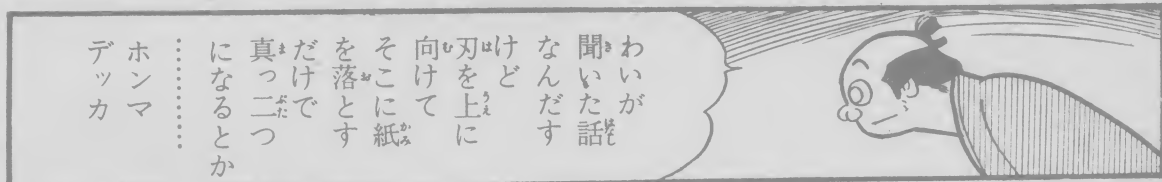 わいが
聞いた話
なんだす
けど
刃を上に
向けて
そこに紙
を落とす
だけで
真っ二つ
になるとか
…………
ホンマ
デッカ